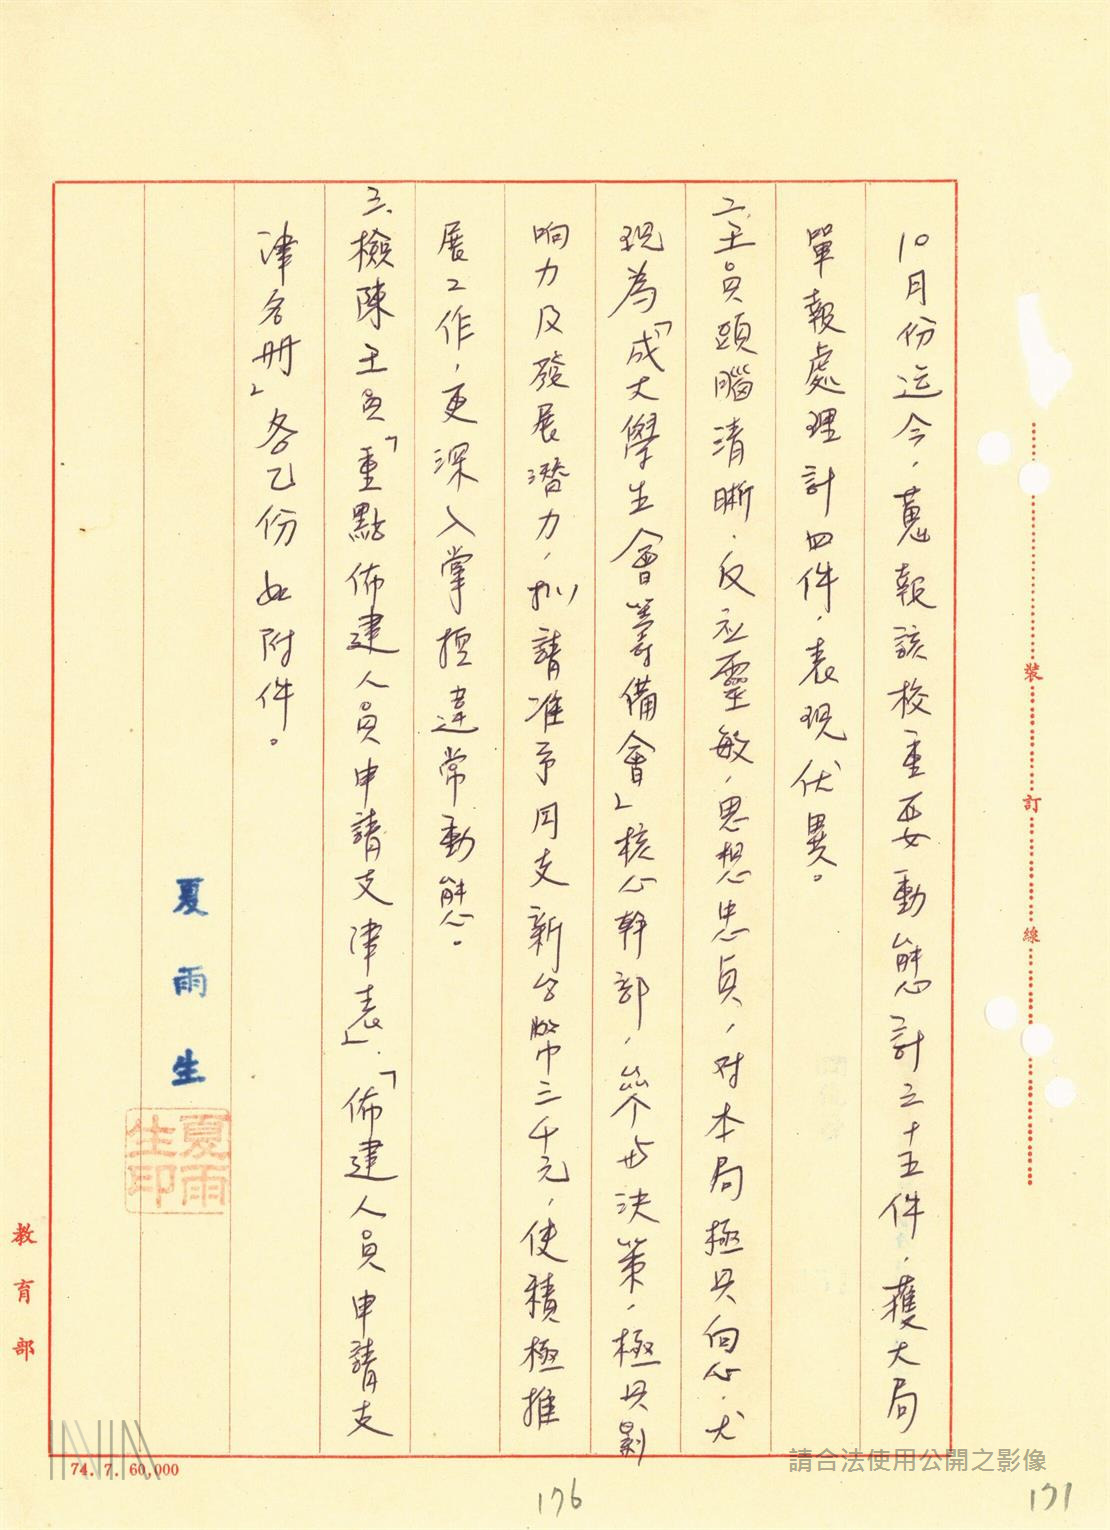 10月份迄今，蒐報該校重要動態計三十五件，獲大局
單報處理計四件，表現優異。
二、王員頭腦清晰，反應靈敏，思想忠貞，对本局極具向心，尤
現為「成大學生會籌備會」核心幹部，參与決策，極具影
响力及發展潛力，拟請准予月支新台幣三千元，使積極推
展工作，更深入掌握違常動態。
三、檢陳王員「重點佈建人員申請支津表」、「佈建人員申請支
津名册」各乙份如附件。
夏雨生
夏雨生印
裝
訂
線
教育部
74. 7. 60,000
請合法使用公開之影像
176
171